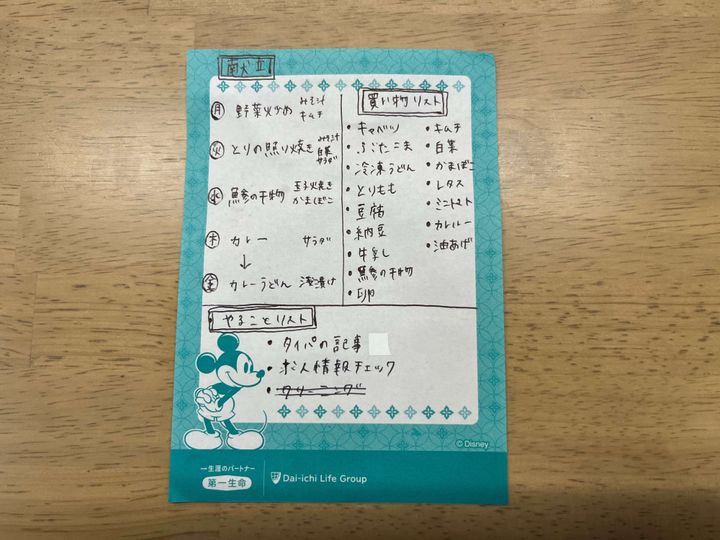 献立
月 野菜炒め みそ汁
キムチ
火 とりの照り焼き みそ汁
白菜
サラダ
水 鯵の干物 玉子焼き
かまぼこ
木 カレー サラダ
↓
金 カレーうどん 浅漬け
買い物リスト
・キャベツ
・ぶたこま
・冷凍うどん
・とりもも
・豆腐
・納豆
・牛乳
・鯵の干物
・卵
・キムチ
・白菜
・かまぼこ
・レタス
・ミニトマト
・カレールー
・油あげ
やることリスト
・タイパの記事
・求人情報チェック
・クリーニング
© Disney
一生涯のパートナー
第一生命
Dai-ichi Life Group